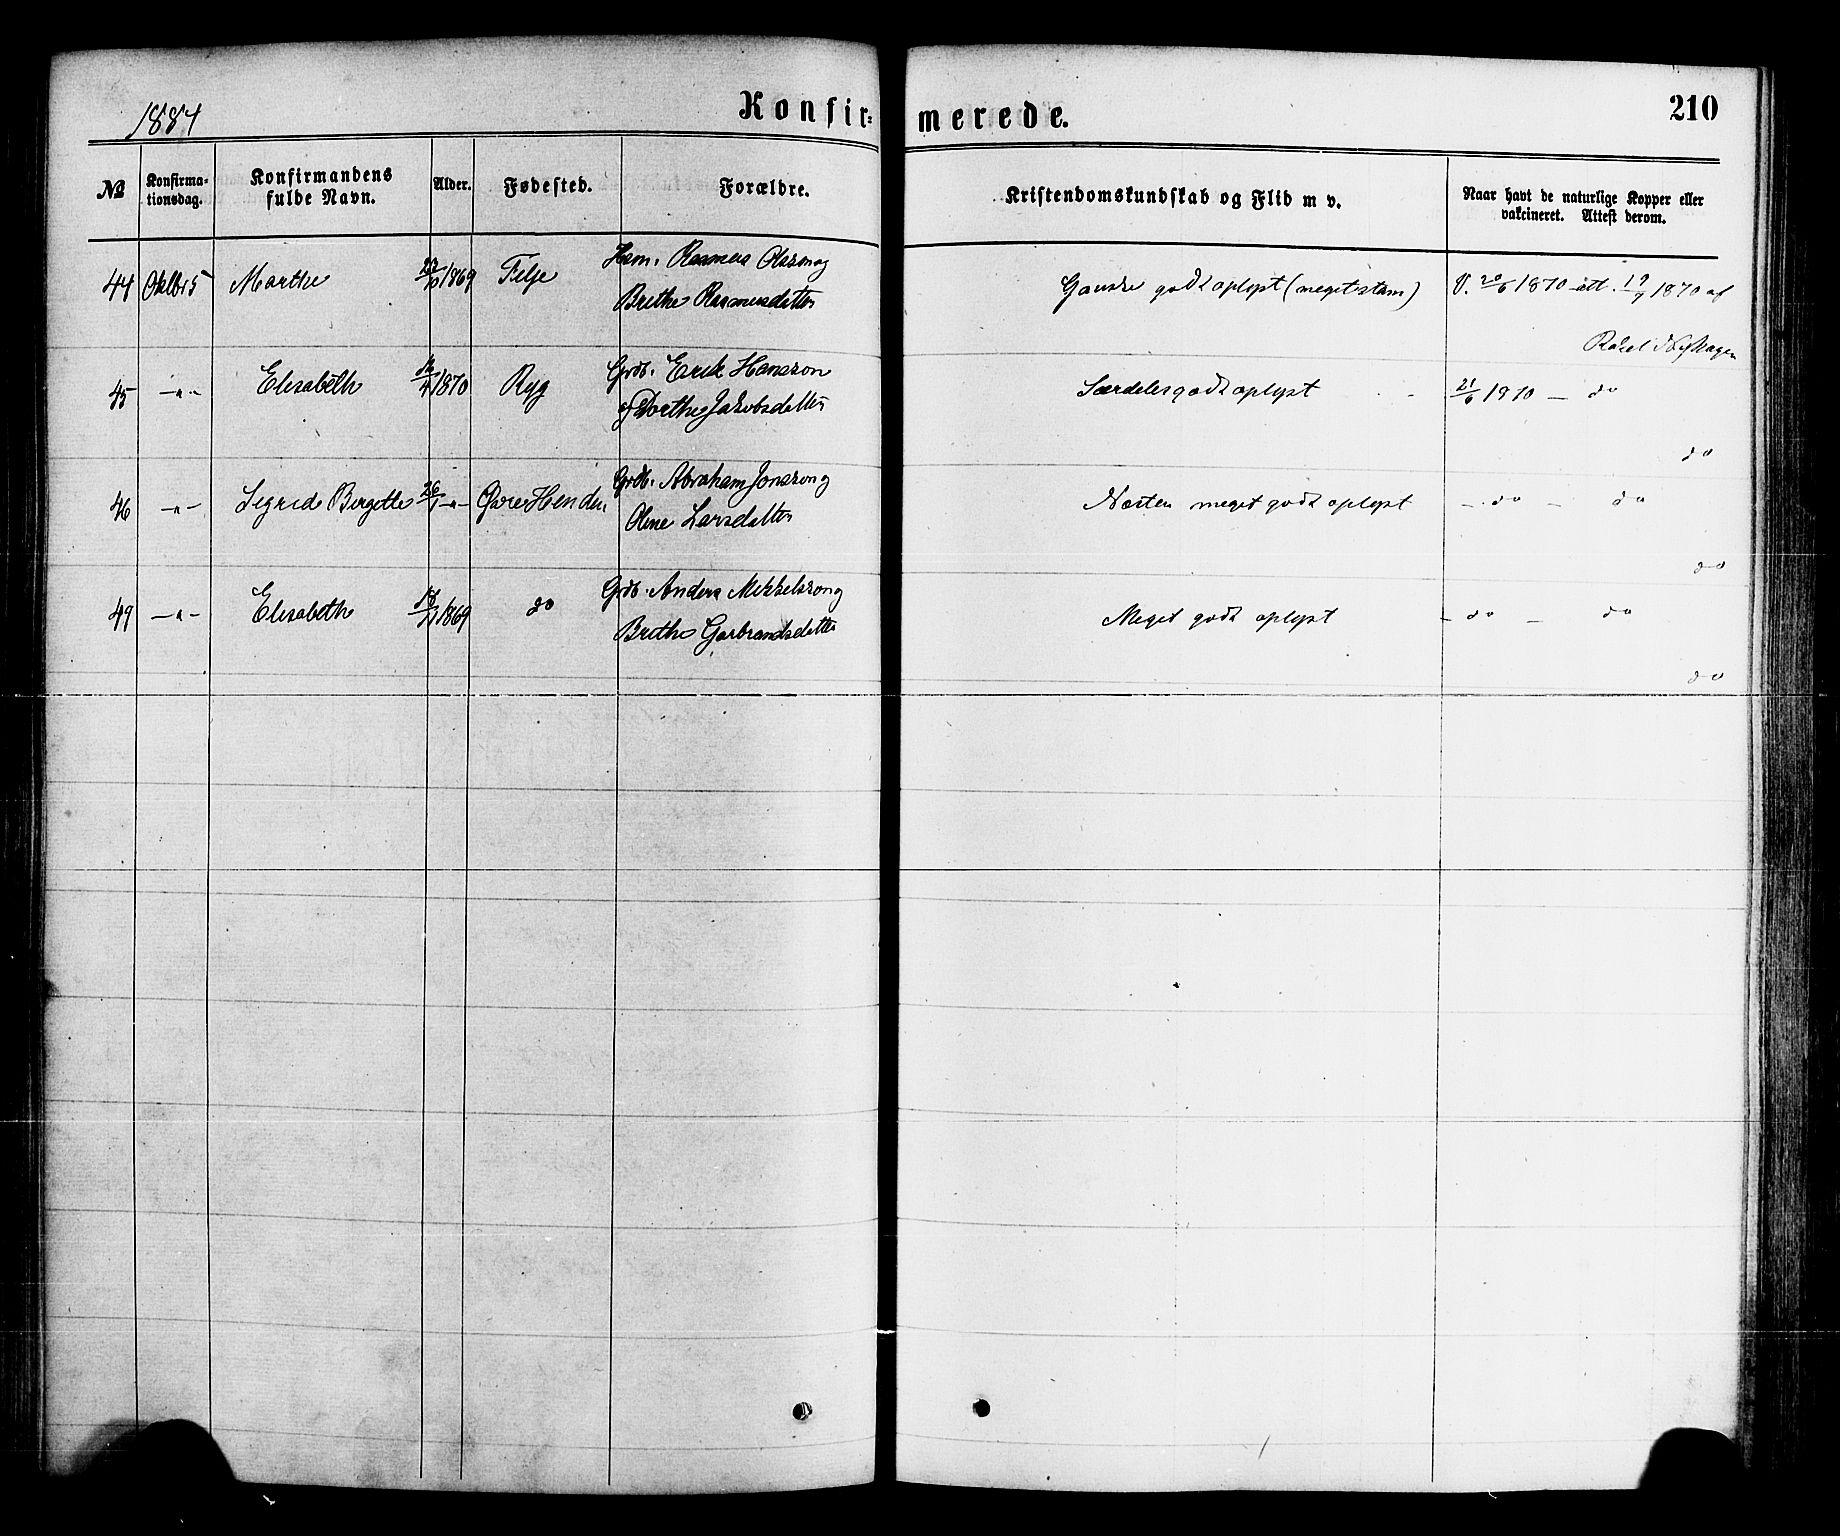 1884
Konfir=merede.
210
No
Konfirma-
tionsdag.
Konfirmandens
fulde Navn.
Alder.
Fødested.
Forældre.
Kristendomskundskab og Flid m v.
Naar havt de naturlige Kopper eller
vakcineret. Attest derom.
44 Oktbr 5 Marthe 1869 Felje Hsm. Rasmus Olsson og
Brithe Rasmusdatter
Ganske godt oplyst (meget stam) V. 20/6 1870 att. 19/9 1870 af
Rakel
45 -"- Elisabeth 1870 Ryg Grdb. Erik Hansson
og Dorthe Jakobsdatter
Særdeles godt oplyst 21/6 1870 — do
do
46 -"- Sigrid Birgette 26/1 -"- Øvre Henden Grdb. Abraham Jonsson og
Oline Larsdatter
Næsten meget godt oplyst - do - do
do
49 -"- Elisabeth 1869 do Grdb. Anders Mikkelsson og
Brithe Garbrandsdatter
Meget godt oplyst - do - do
do